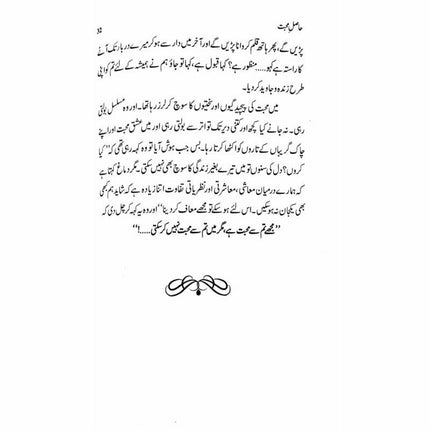 حاصلِ محبت
32
پڑیں گے، پھر ہاتھ قلم کروانا پڑیں گے اور آخر میں دار سے ہو کر میرے دربار تک آنے
کا راستہ ہے کہو..... منظور ہے؟ کہا قبول ہے، کہا تو جاؤ ہم نے ہمیشہ کے لئے تم کو اپنی
طرح زندہ و جاوید کر دیا۔
میں محبت کی پیچیدگیوں اور سختیوں کا سوچ کر لرز رہا تھا۔ اور وہ مسلسل بولتی
رہی۔ نہ جانے کیا کچھ اور کتنی دیر تک تواتر سے بولتی رہی اور میں عشق محبت اور اپنے
چاک گریباں کے تاروں کو اکٹھا کرتا رہا۔ بس جب ہوش آیا تو وہ کہہ رہی تھی کہ ”کیا
کروں؟ دل کی سنوں تو میں تیرے بغیر زندگی کا سوچ بھی نہیں سکتی۔ مگر دماغ کہتا ہے
کہ ہمارے درمیان معاشی، معاشرتی اور نظریاتی تفاوت اتنا زیادہ ہے کہ شاید ہم کبھی
بھی یکجان نہ ہو سکیں۔ اس لئے ہو سکے تو مجھے معاف کر دینا“ اور وہ یہ کہہ کر چل دی کہ
”مجھے تم سے محبت ہے، مگر میں تم سے محبت نہیں کر سکتی.....!“